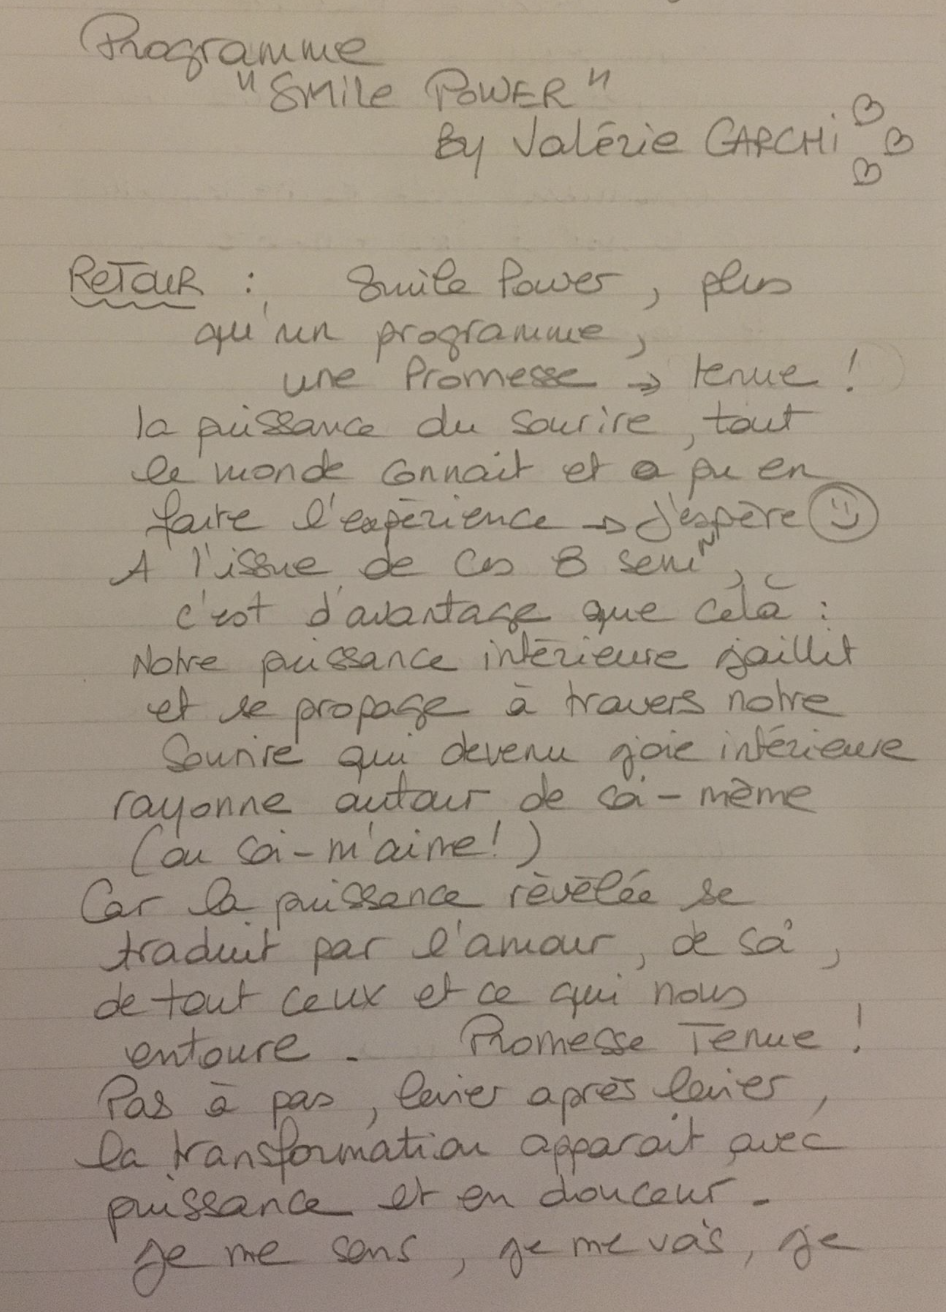 Programme
"SMile POWER"
By Valérie GARCHI
RETOUR : Smile Power, plus
qu'un programme,
une Promesse → tenue !
la puissance du sourire, tout
le monde connait et a pu en
faire l'expérience → j'espère
A l'issue de ces 8 sem,
c'est d'avantage que celà :
Notre puissance intérieure jaillit
et se propage à travers notre
Sourire qui devenu joie intérieure
rayonne autour de soi-même
(ou soi-m'aime!)
Car la puissance révélée se
traduit par l'amour, de soi,
de tout ceux et ce qui nous
entoure. Promesse Tenue !
Pas à pas, levier après levier,
la transformation apparait avec
puissance et en douceur.
je me sens, je me vois, je